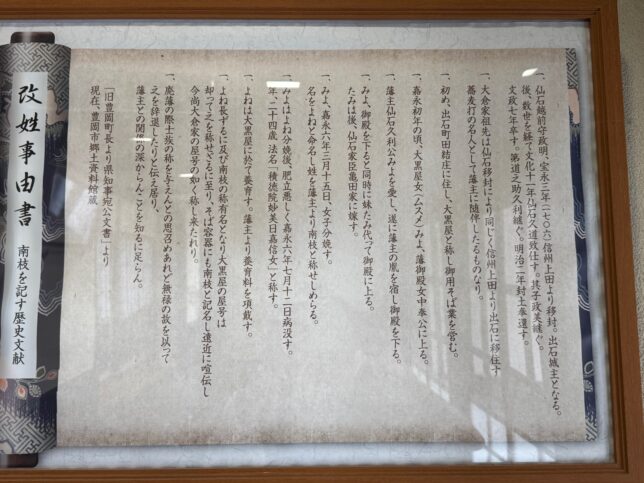 一、仙石越前守政明、宝永三年(一七〇六)信州上田より移封。出石城主となる。
後、数世を経て文化十一年仙石久道致仕す。其子政美継ぐ。
文政七年卒す。第道之助久利継ぐ。明治二年封土奉還す。
一、大倉家祖先は仙石移封により同じく信州上田より出石に移住す
蕎麦打の名人として藩主に随伴したるものなり。
一、初め、出石町田結庄に住し、大黒屋と称し、御用そば業を営む。
一、嘉永初年の頃、大黒屋女(ムスメ)みよ、藩御殿女中奉公に上る。
一、藩主仙石久利公みよを愛し、遂に藩主の胤を宿し御殿を下る。
一、みよ、御殿を下ると同時に妹たみ代って御殿に上る。
たみは後、仙石家臣亀田家に嫁す。
一、みよ、嘉永六年三月十五日、女子分娩す。
名をよねと命名し姓を藩主より南枝と称せしめらる。
一、みよはよね分娩後、肥立悪しく嘉永六年七月十二日病没す。
年、二十四歳 法名「積徳院妙美日嘉信女」と称す。
一、よねは大黒屋に於て養育す。藩主より養育料を項戴す。
一、よね長ずるに及び南枝の称有名となり大黒屋の屋号は
却って之を称せざるに至り、そば容器にも南枝と記名し遠近に喧伝し
今尚大倉家の屋号の如く称し来たれり。
一、廃藩の際士族の称を与えんとの思召めあれど無禄の故を以って
之を辞退したりと伝え居り、
藩主との関係の深からんことを知るに足らん。
「旧豊岡町長より県知事宛公文書」より
現在、豊岡市郷土資料館蔵
改姓事由書
南枝を記す歴史文献